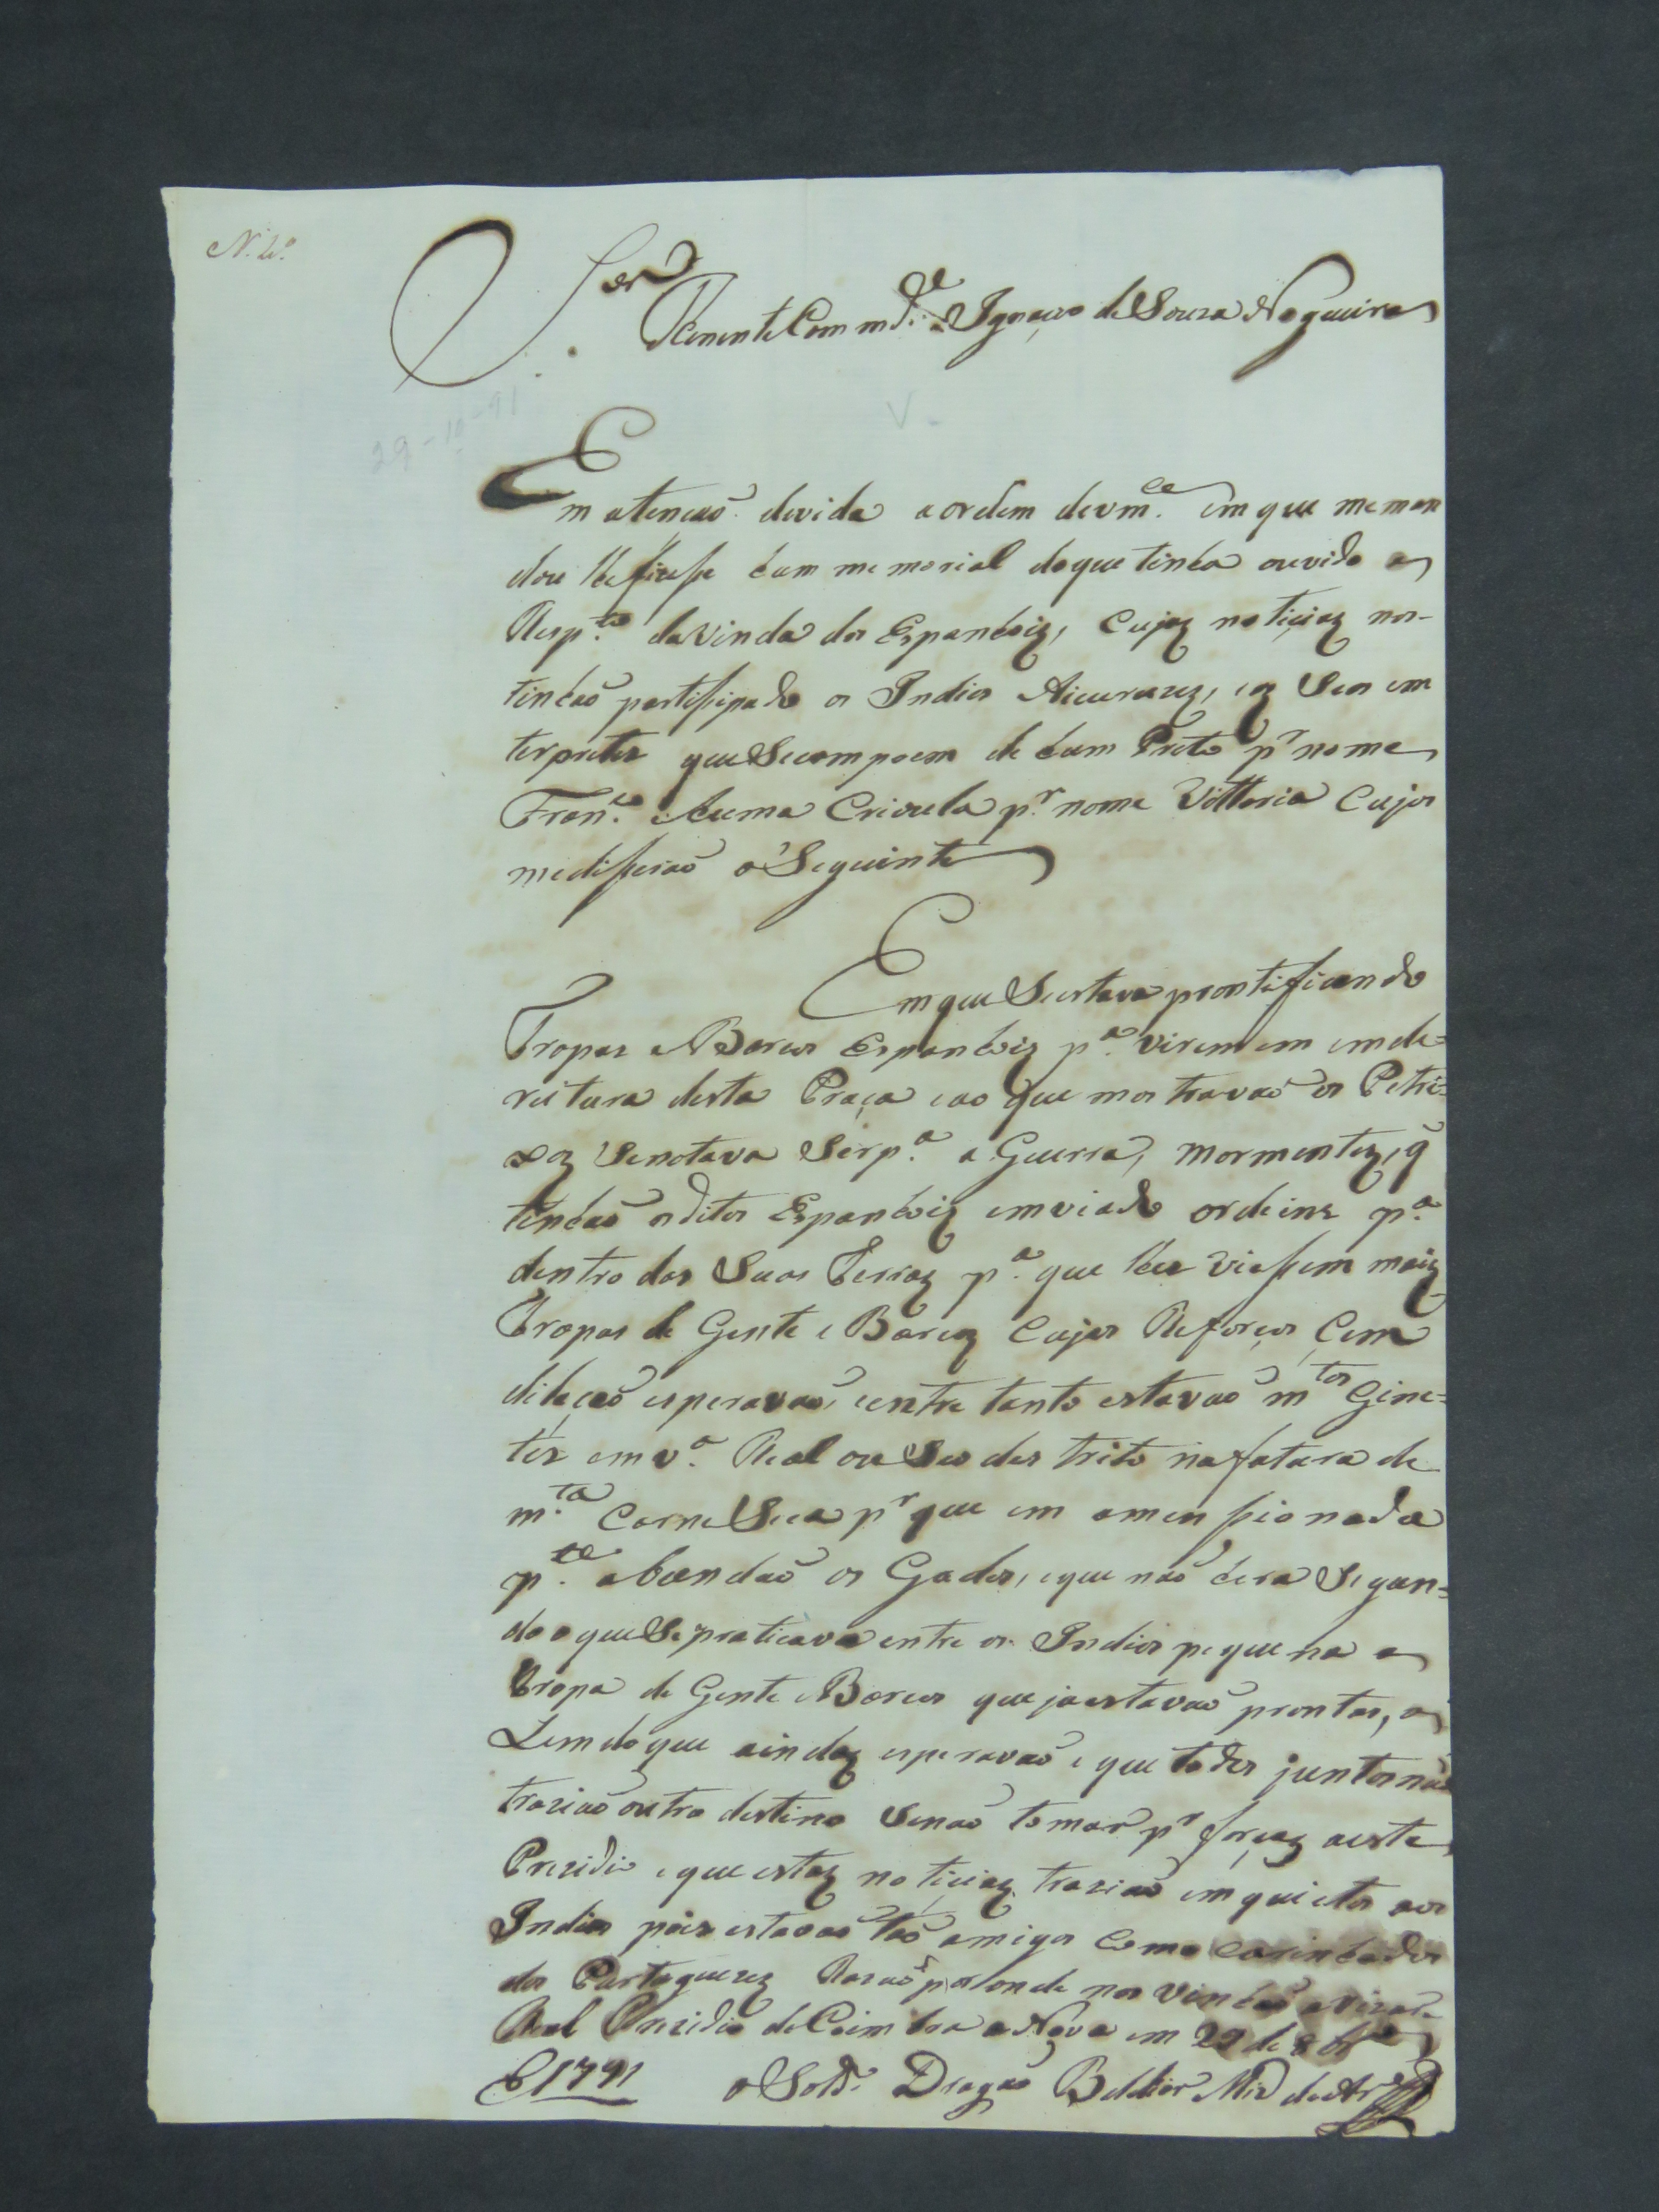 N. 4º
Sen.r
Tenente Comm.de Ignacio de Souza Nogueira
29-10-91
Em atencaõ devida a ordem de vm.ce em que me man
dou lhe ficesse hum memorial do que tinha ouvido a
Resp.to da vinda dos Espanhoiz, Cujaz noticiaz nos
tinhaõ partissipado os Indios Aicuruzez, e oz Seos em
terpretes que Se compoem de hum Preto p.r nome
Fran.co e huma Crioula p.r nome Vittoria Cujos
me disseraõ o Seguinte
Em que Se estava prontificando
Tropas e Barcos Espanhois p.a virem em emde=
reitura desta Praça e ao que mostravaõ os Petri=
xoz Se notava Ser p.a a Guerra, mormentez, q̃
tinhaõ os ditos Espanhoiz emviado ordeins p.a
dentro das Suas Terraz p.a que lhes viessem maiz
Tropas de Gente e Barcoz Cujos Reforços Com
dilaçaõ esperavaõ, e entre tanto estavaõ m.tos Gine=
tes em v.a Real ou Seo destrito na fatura de
m.ta Carne Seca p.r que em a mensionada
p.te abundaõ os Gados, e que naõ hera Segun=
do o que Se praticava entre os Indios pequena a
Tropa de Gente e Barcos que ja estavaõ prontos, a
Lem do que aindaz esperavaõ e que todos juntos naõ
traziaõ outro destino Senaõ tomar p.r forçaz a este
Prezidio e que estaz noticiaz traziaõ emquietos aos
Indios pois estavaõ taõ amigos Como Carinhados
dos Portuguezez Razaõ por onde nos vinhaõ avizar
Real Prezidio de Coimbra a Nova em 29 de 8br.o
de 1791 o Sold.o Dragaõ Belchior Miz